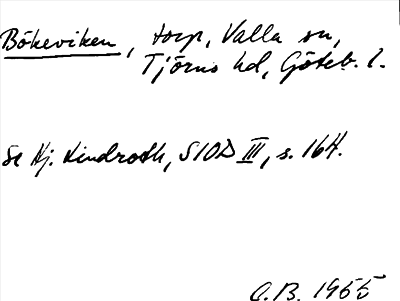 Bökeviken, torp, Valla sn,
Tjörns hd, Göteb. l.
Se Hj. Lindroth, SIOD III, s. 164.
O.B. 1955